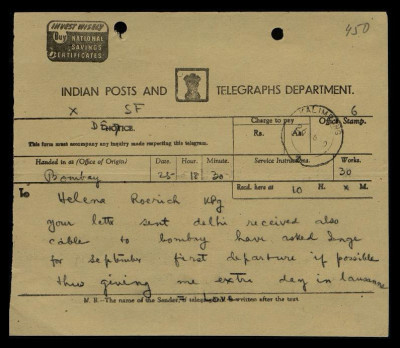 INVEST WISELY
Buy NATIONAL
SAVINGS
CERTIFICATES
450
INDIAN POSTS AND TELEGRAPHS DEPARTMENT.
X SF 6
NOTICE.
Charge to pay
Office Stamp.
This form must accompany any inquiry made respecting this telegram.
Rs. As.
Handed in at (Office of Origin) Date. Hour. Minute. Service Instructions. Words.
Bombay 25 18 30 30
Recd. here at 10 H. X M.
To Helena Roerich Kpg
your lette sent delhi received also
cable to bombay have asked
for september first departure if possible
thus giving me extra day in lausanne
N. B.—The name of the Sender, if telegraphed, is written after the text